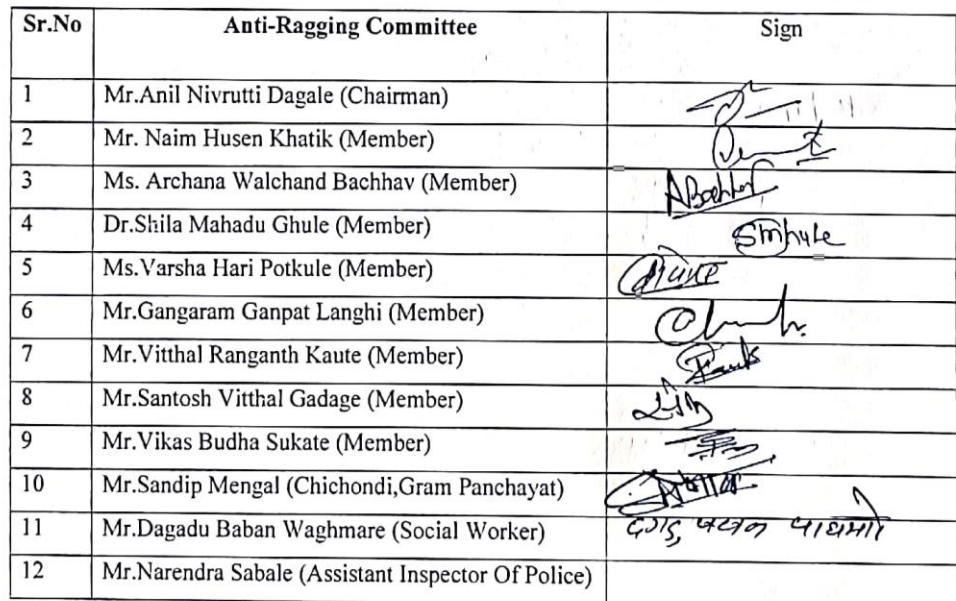 Sr.No Anti-Ragging Committee Sign
1 Mr.Anil Nivrutti Dagale (Chairman)
2 Mr. Naim Husen Khatik (Member)
3 Ms. Archana Walchand Bachhav (Member) ABachhav
4 Dr.Shila Mahadu Ghule (Member)
5 Ms.Varsha Hari Potkule (Member)
6 Mr.Gangaram Ganpat Langhi (Member)
7 Mr.Vitthal Ranganth Kaute (Member)
8 Mr.Santosh Vitthal Gadage (Member)
9 Mr.Vikas Budha Sukate (Member)
10 Mr.Sandip Mengal (Chichondi,Gram Panchayat)
11 Mr.Dagadu Baban Waghmare (Social Worker)
12 Mr.Narendra Sabale (Assistant Inspector Of Police)